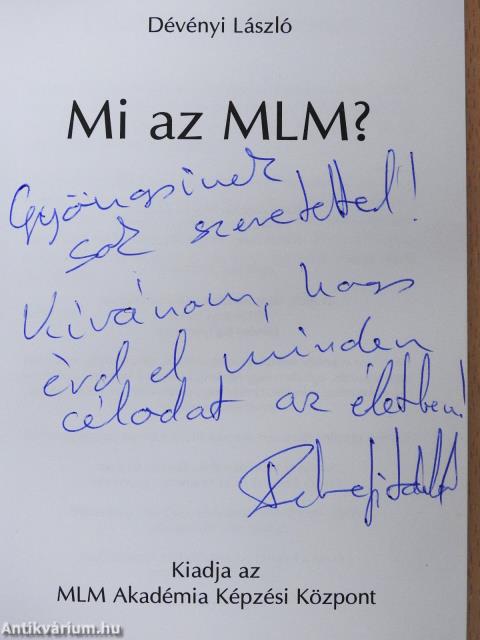 Dévényi László
Mi az MLM?
Gyöngyinek
sok szeretettel!
Kívánom, hogy
érd el minden
célodat az életben!
Kiadja az
MLM Akadémia Képzési Központ
Antikvárium.hu